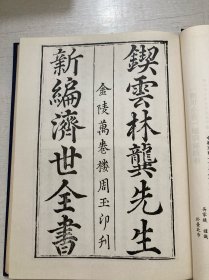 鍥雲林龔先生
金陵萬卷樓周玉印刊
新編濟世全書